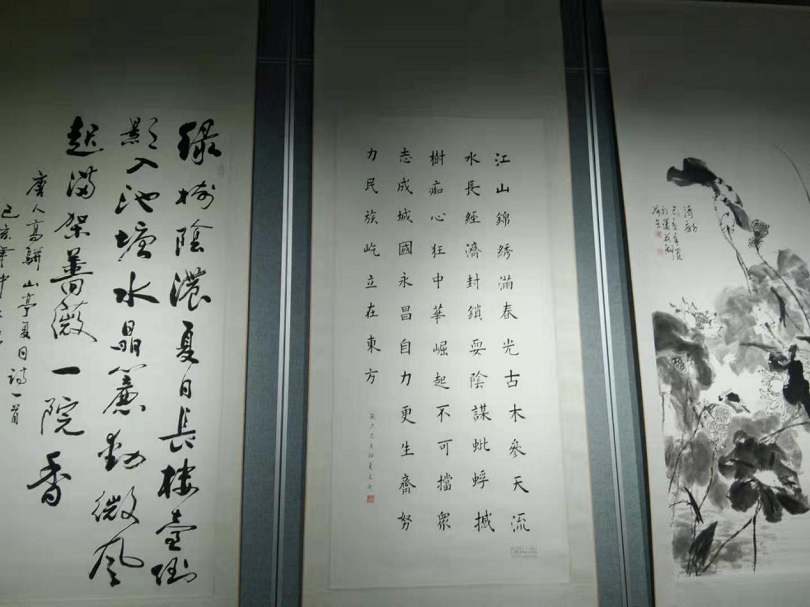 綠樹陰濃夏日長樓臺倒
影入池塘水晶簾動微風
起滿架薔薇一院香
唐人高駢山亭夏日詩一首
己亥年中
江山錦绣滿春光古木參天流
水長經濟封鎖耍陰謀蚍蜉撼
樹痴心狂中華崛起不可擋眾
志成城國永昌自力更生齊努
力民族屹立在東方